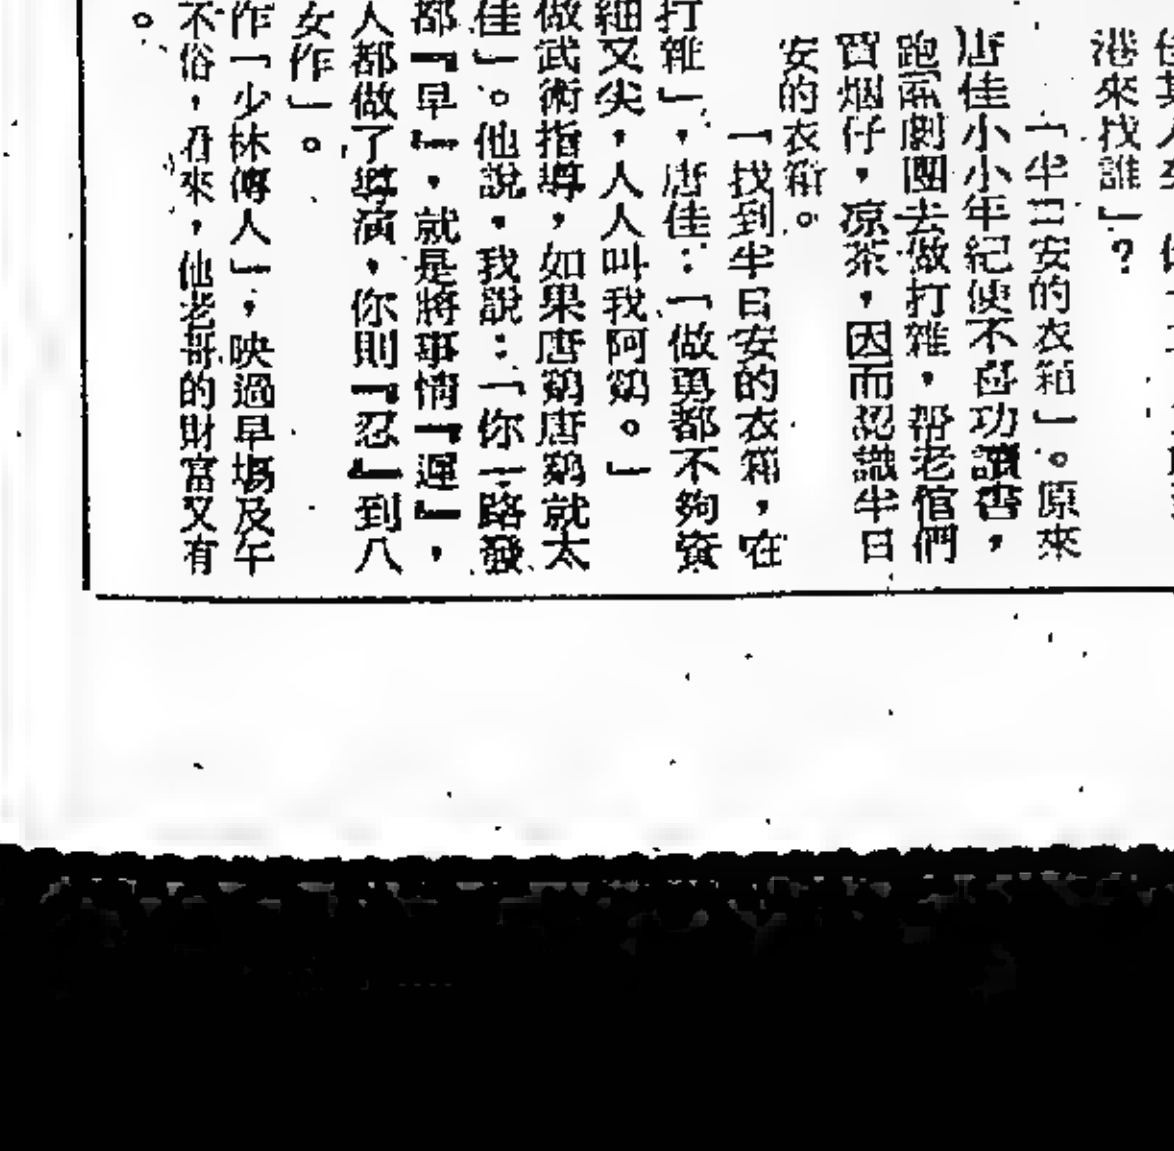 港來找誰」？
「半日安的衣箱」。原來
唐佳小小年紀便不喜功讀書，
跑戲劇團去做打雜，帮老倌們
買烟仔，凉茶，因而認識半日
安的衣箱。
「找到半日安的衣箱，在
打雜」，唐佳：「做勇都不夠資
細又尖，人人叫我阿鷄。」
做武術指導，如果唐鷄唐鷄就太
佳」。他說，我說：「你一路發
都『早』，就是將事情『運』，
人都做了導演，你則『忍』到八
女作」。
作「少林傳人」，映過早場及午
不俗，看來，他老哥的財富又有
。